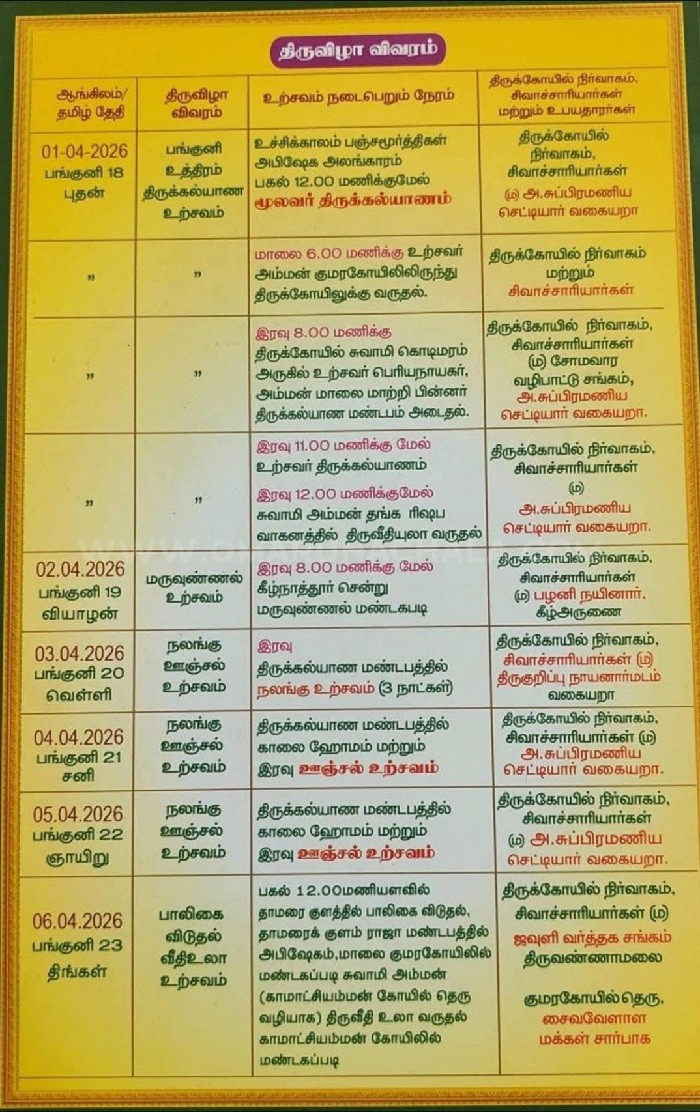 திருவிழா விவரம்
ஆங்கிலம்/
தமிழ் தேதி
திருவிழா
விவரம்
உற்சவம் நடைபெறும் நேரம்
திருக்கோயில் நிர்வாகம்,
சிவாச்சாரியார்கள்
மற்றும் உபயதாரர்கள்
01-04-2026
பங்குனி 18
புதன்
பங்குனி
உத்திரம்
திருக்கல்யாண
உற்சவம்
உச்சிக்காலம் பஞ்சமூர்த்திகள்
அபிஷேக அலங்காரம்
பகல் 12.00 மணிக்குமேல்
மூலவர் திருக்கல்யாணம்
திருக்கோயில்
நிர்வாகம்,
சிவாச்சாரியார்கள்
(ம) அ.சுப்பிரமணிய
செட்டியார் வகையறா
"
"
மாலை 6.00 மணிக்கு உற்சவர்
அம்மன் குமரகோயிலிலிருந்து
திருக்கோயிலுக்கு வருதல்.
திருக்கோயில் நிர்வாகம்
மற்றும்
சிவாச்சாரியார்கள்
"
"
இரவு 8.00 மணிக்கு
திருக்கோயில் சுவாமி கொடிமரம்
அருகில் உற்சவர் பெரியநாயகர்,
அம்மன் மாலை மாற்றி பின்னர்
திருக்கல்யாண மண்டபம் அடைதல்.
திருக்கோயில் நிர்வாகம்,
சிவாச்சாரியார்கள்
(ம) சோமவார
வழிபாட்டு சங்கம்,
அ.சுப்பிரமணிய
செட்டியார் வகையறா.
"
"
இரவு 11.00 மணிக்கு மேல்
உற்சவர் திருக்கல்யாணம்
இரவு 12.00 மணிக்குமேல்
சுவாமி அம்மன் தங்க ரிஷப
வாகனத்தில் திருவீதியுலா வருதல்
திருக்கோயில் நிர்வாகம்,
சிவாச்சாரியார்கள்
(ம)
அ.சுப்பிரமணிய
செட்டியார் வகையறா.
02.04.2026
பங்குனி 19
வியாழன்
மருவுண்ணல்
உற்சவம்
இரவு 8.00 மணிக்கு மேல்
கீழ்நாத்தூர் சென்று
மருவுண்ணல் மண்டகபடி
திருக்கோயில் நிர்வாகம்,
சிவாச்சாரியார்கள்
(ம) பழனி நயினார்,
கீழ்அருணை
03.04.2026
பங்குனி 20
வெள்ளி
நலங்கு
ஊஞ்சல்
உற்சவம்
இரவு
திருக்கல்யாண மண்டபத்தில்
நலங்கு உற்சவம் (3 நாட்கள்)
திருக்கோயில் நிர்வாகம்,
சிவாச்சாரியார்கள் (ம)
திருகுறிப்பு நாயனார்மடம்
வகையறா
04.04.2026
பங்குனி 21
சனி
நலங்கு
ஊஞ்சல்
உற்சவம்
திருக்கல்யாண மண்டபத்தில்
காலை ஹோமம் மற்றும்
இரவு ஊஞ்சல் உற்சவம்
திருக்கோயில் நிர்வாகம்,
சிவாச்சாரியார்கள் (ம)
அ.சுப்பிரமணிய
செட்டியார் வகையறா.
05.04.2026
பங்குனி 22
ஞாயிறு
நலங்கு
ஊஞ்சல்
உற்சவம்
திருக்கல்யாண மண்டபத்தில்
காலை ஹோமம் மற்றும்
இரவு ஊஞ்சல் உற்சவம்
திருக்கோயில் நிர்வாகம்,
சிவாச்சாரியார்கள்
(ம) அ.சுப்பிரமணிய
செட்டியார் வகையறா.
06.04.2026
பங்குனி 23
திங்கள்
பாலிகை
விடுதல்
வீதிஉலா
உற்சவம்
பகல் 12.00மணியளவில்
தாமரை குளத்தில் பாலிகை விடுதல்,
தாமரைக் குளம் ராஜா மண்டபத்தில்
அபிஷேகம்,மாலை குமரகோயிலில்
மண்டகப்படி சுவாமி அம்மன்
(காமாட்சியம்மன் கோயில் தெரு
வழியாக) திருவீதி உலா வருதல்
காமாட்சியம்மன் கோயிலில்
மண்டகப்படி
திருக்கோயில் நிர்வாகம்,
சிவாச்சாரியார்கள் (ம)
ஜவுளி வர்த்தக சங்கம்
திருவண்ணாமலை
குமரகோயில்தெரு,
சைவவேளாள
மக்கள் சார்பாக